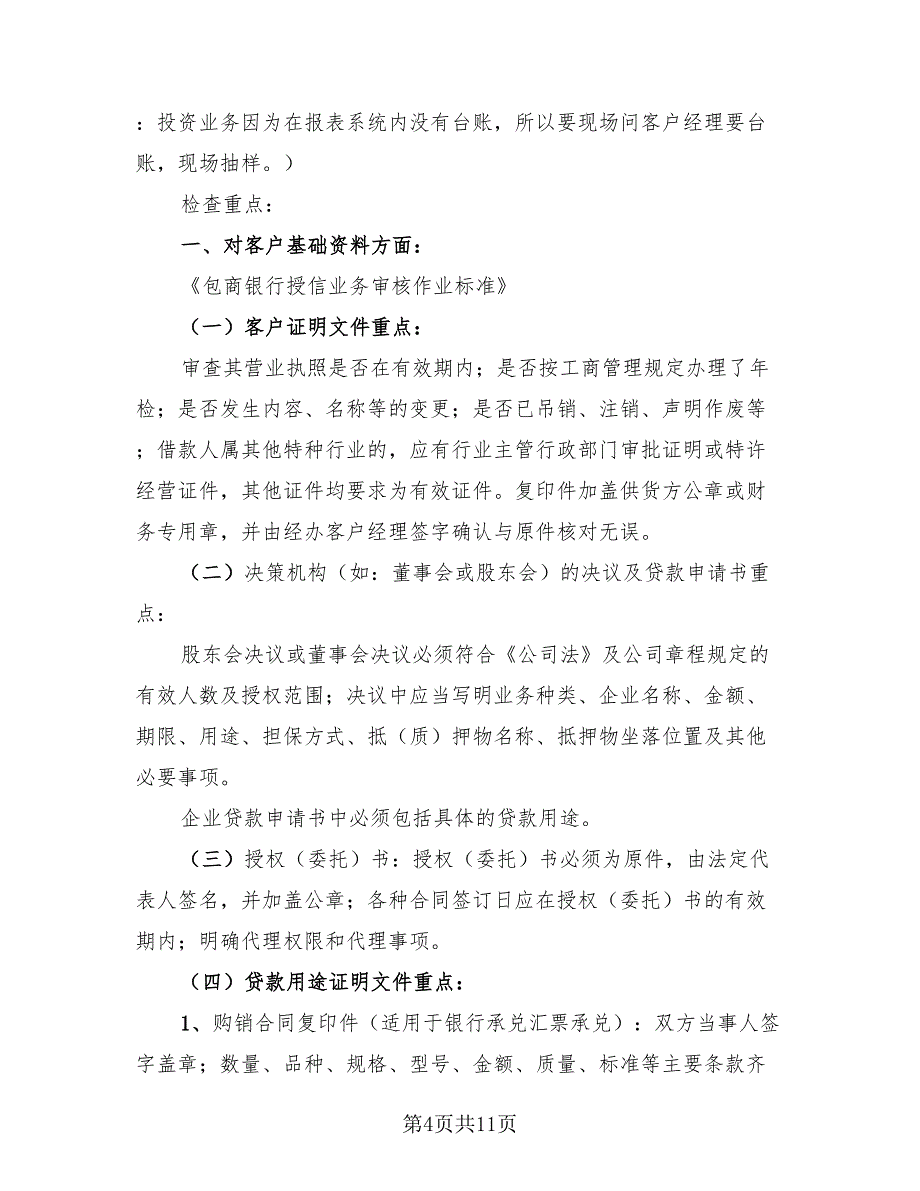 ：投资业务因为在报表系统内没有台账，所以要现场问客户经理要台
账，现场抽样。）
检查重点：
一、对客户基础资料方面：
《包商银行授信业务审核作业标准》
（一）客户证明文件重点：
审查其营业执照是否在有效期内；是否按工商管理规定办理了年
检；是否发生内容、名称等的变更；是否已吊销、注销、声明作废等
；借款人属其他特种行业的，应有行业主管行政部门审批证明或特许
经营证件，其他证件均要求为有效证件。复印件加盖供货方公章或财
务专用章，并由经办客户经理签字确认与原件核对无误。
（二）决策机构（如：董事会或股东会）的决议及贷款申请书重
点：
股东会决议或董事会决议必须符合《公司法》及公司章程规定的
有效人数及授权范围；决议中应当写明业务种类、企业名称、金额、
期限、用途、担保方式、抵（质）押物名称、抵押物坐落位置及其他
必要事项。
企业贷款申请书中必须包括具体的贷款用途。
（三）授权（委托）书：授权（委托）书必须为原件，由法定代
表人签名，并加盖公章；各种合同签订日应在授权（委托）书的有效
期内；明确代理权限和代理事项。
（四）贷款用途证明文件重点：
1、购销合同复印件（适用于银行承兑汇票承兑）：双方当事人签
字盖章；数量、品种、规格、型号、金额、质量、标准等主要条款齐
第4页共11页